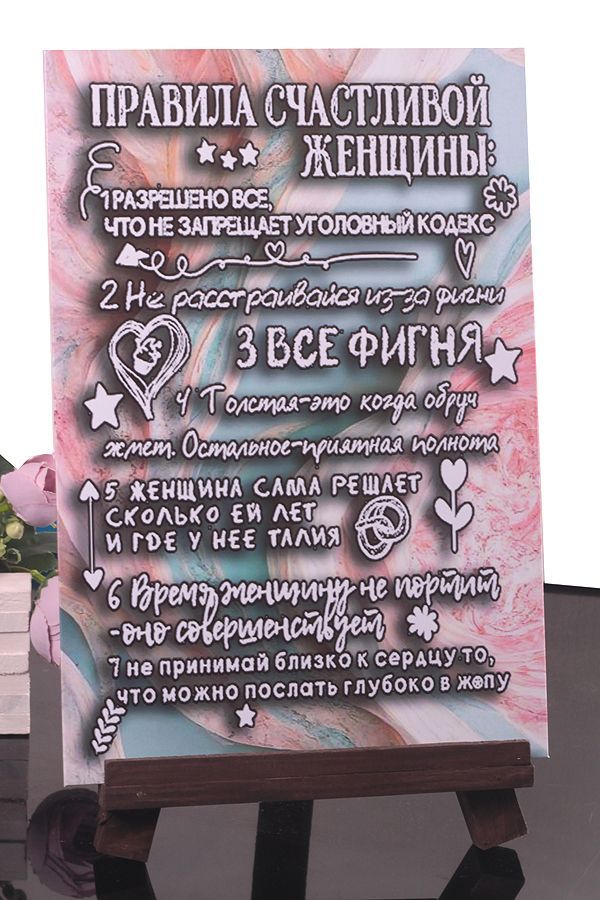 ПРАВИЛА СЧАСТЛИВОЙ
ЖЕНЩИНЫ:
1 РАЗРЕШЕНО ВСЕ,
ЧТО НЕ ЗАПРЕЩАЕТ УГОЛОВНЫЙ КОДЕКС
2 Не расстраивайся из-за фигни
3 ВСЕ ФИГНЯ
4 Толстая-это когда обруч
жмет. Остальное-приятная полнота
5 ЖЕНЩИНА САМА РЕШАЕТ
СКОЛЬКО ЕЙ ЛЕТ
И ГДЕ У НЕЕ ТАЛИЯ
6 Время женщину не портит
-оно совершенствует
7 не принимай близко к сердцу то,
что можно послать глубоко в жопу